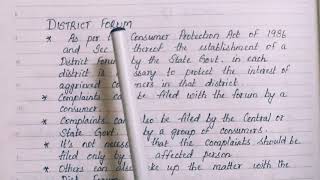 DISTRICT FORUM
* As per Consumer Protection Act of 1986
and Sec thereof the establishment of a
District Forum by the State Govt. in each
district is to protect the interest of
aggrieved in that district.
* Complaints can be filed with the forum by a
consumer.
* Complaints can be filed by the Central or
State Govt. by a group of consumers.
* It's not that the complaints should be
filed only by affected person
* Others can up the matter with the